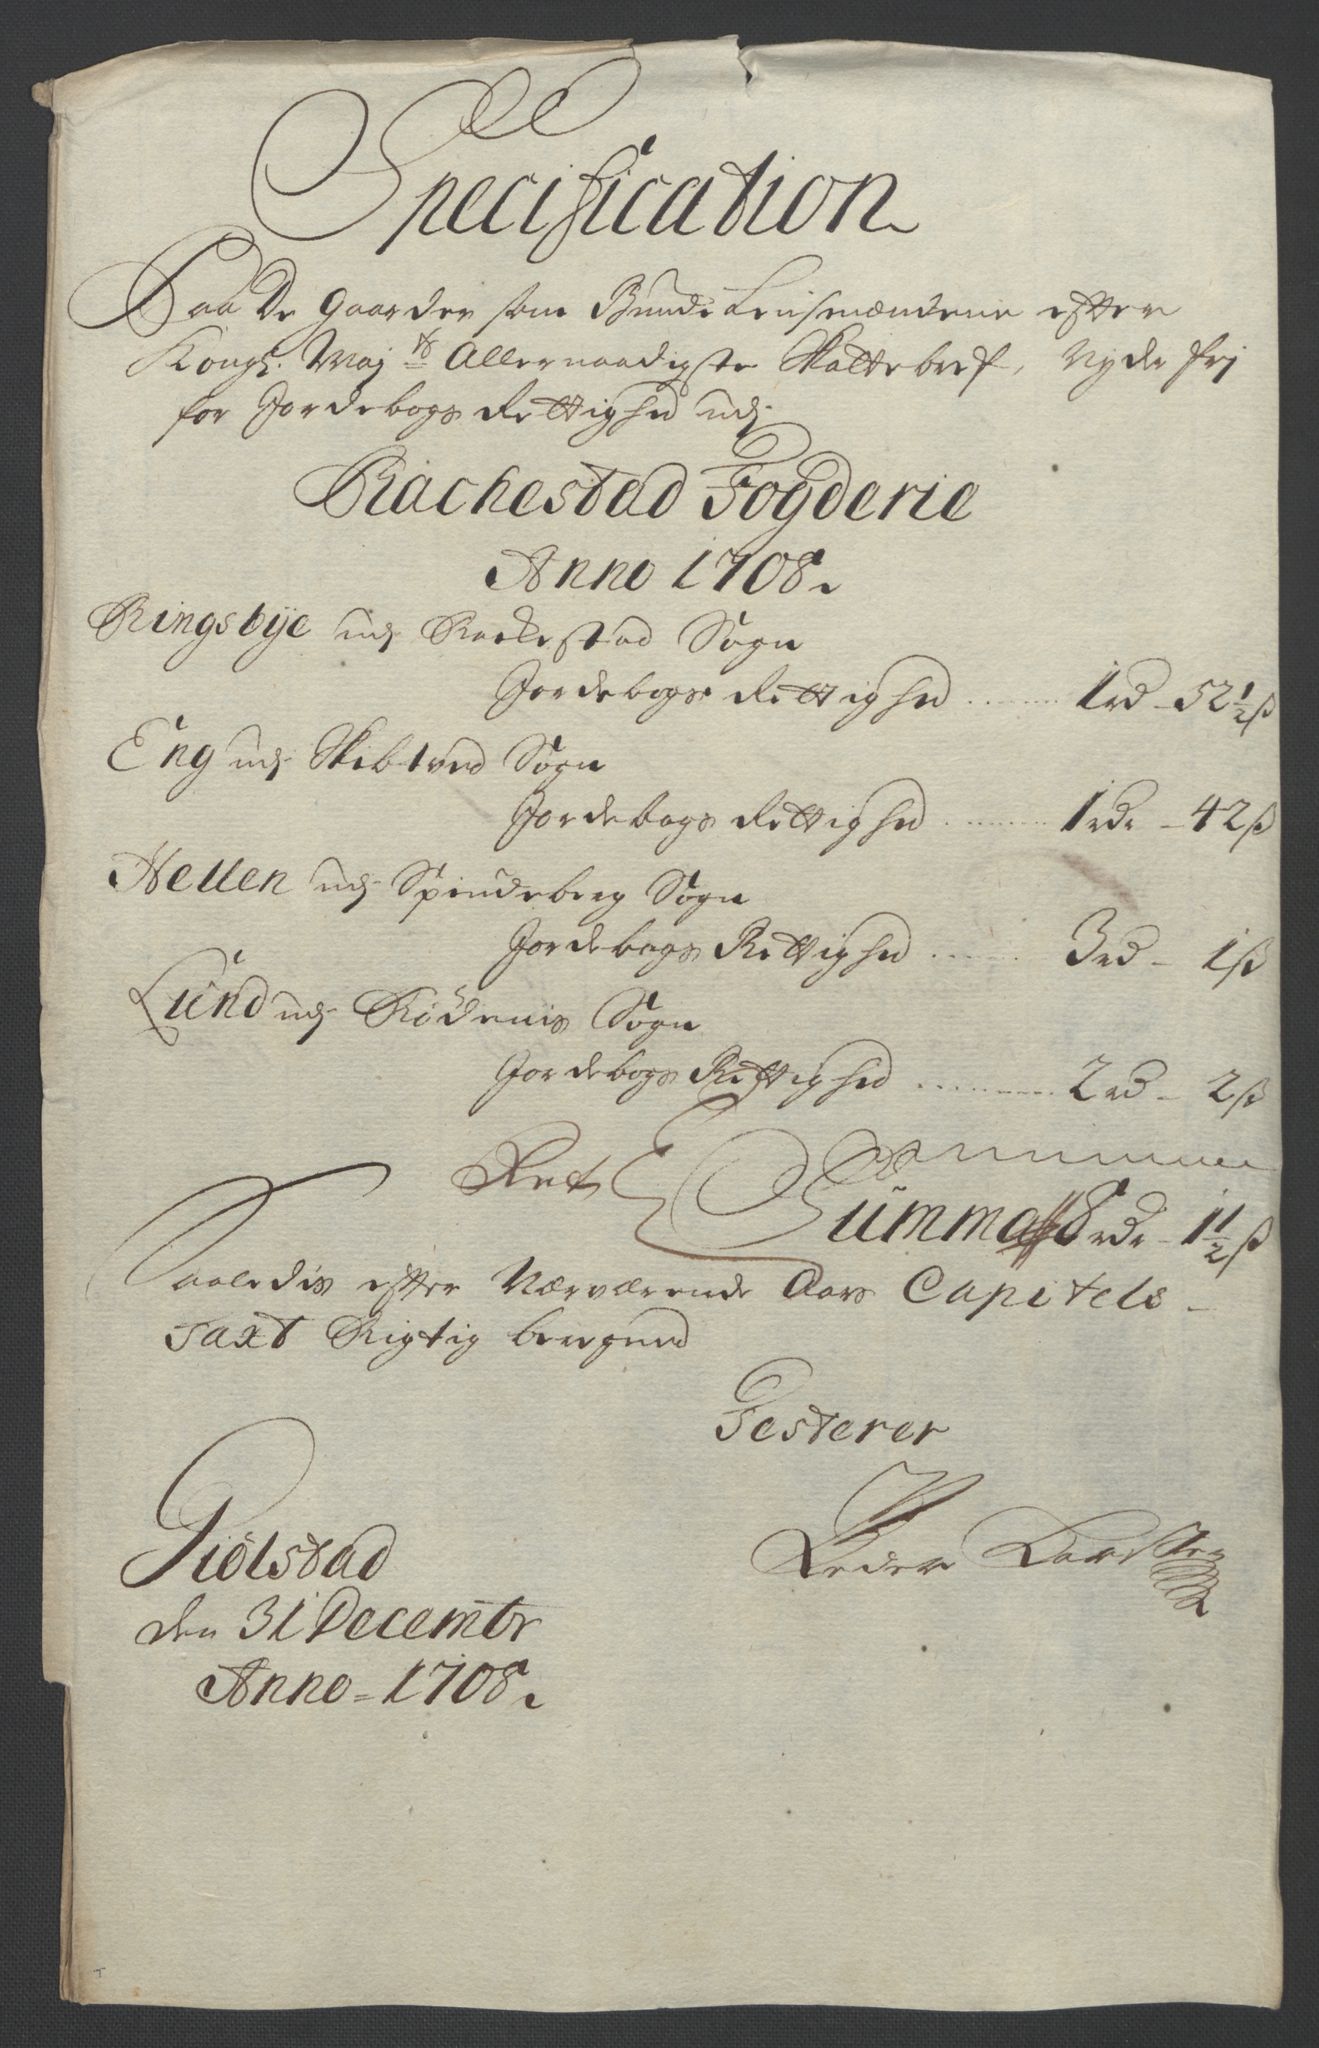 Specification
Paa De Gaarder som Bunde Lensmændene efter
Kongl. Maj.ts Allernaadigste Skattebref, Nyde frj
for Jordebogs Rettighed udj
Rachestad Fogderie
Anno 1708.
Ringsbye udj Rackestad Sogn
Jordebogs Rettighed ........ 1 rd - 52 1/2 ß
Eng udj Skibtved Sogn
Jordebogs Rettighed ........ 1 rdr - 42 ß
Hellen udj Spindeberg Sogn
Jordebogs Rettighed ....... 3 rd - 1 ß
Lund udj Rödenis Sogn
Jordebogs Rettighed ........ 2 rd - 2 ß
Ret Summa 8 rdr - 1 1/2 ß
Saaledis efter Nærværende Aars Capitels-
Taxt Rigtig beregned
Testerer
Giølstad
Peder Karsten
den 31 Decembr
Anno = 1708.